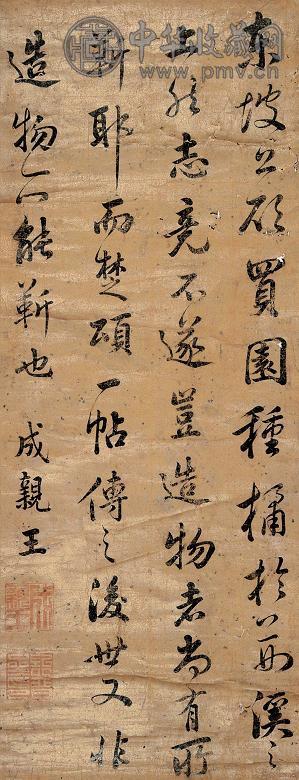 中华收藏网
www.pmv.cn
東坡公欲買園種橘於荆溪之
上然志竟不遂豈造物者尚有所
靳耶而楚頌一帖傳之後世又非
造物所能靳也 成親王